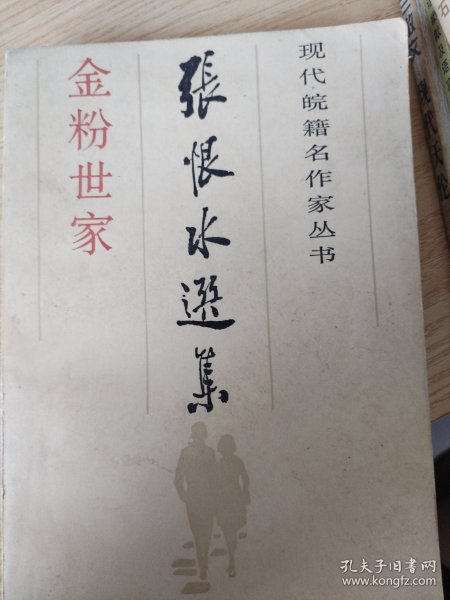 现代皖籍名作家丛书
張恨水選集
金粉世家
现代天论
孔夫子旧书网
www.kongfz.com